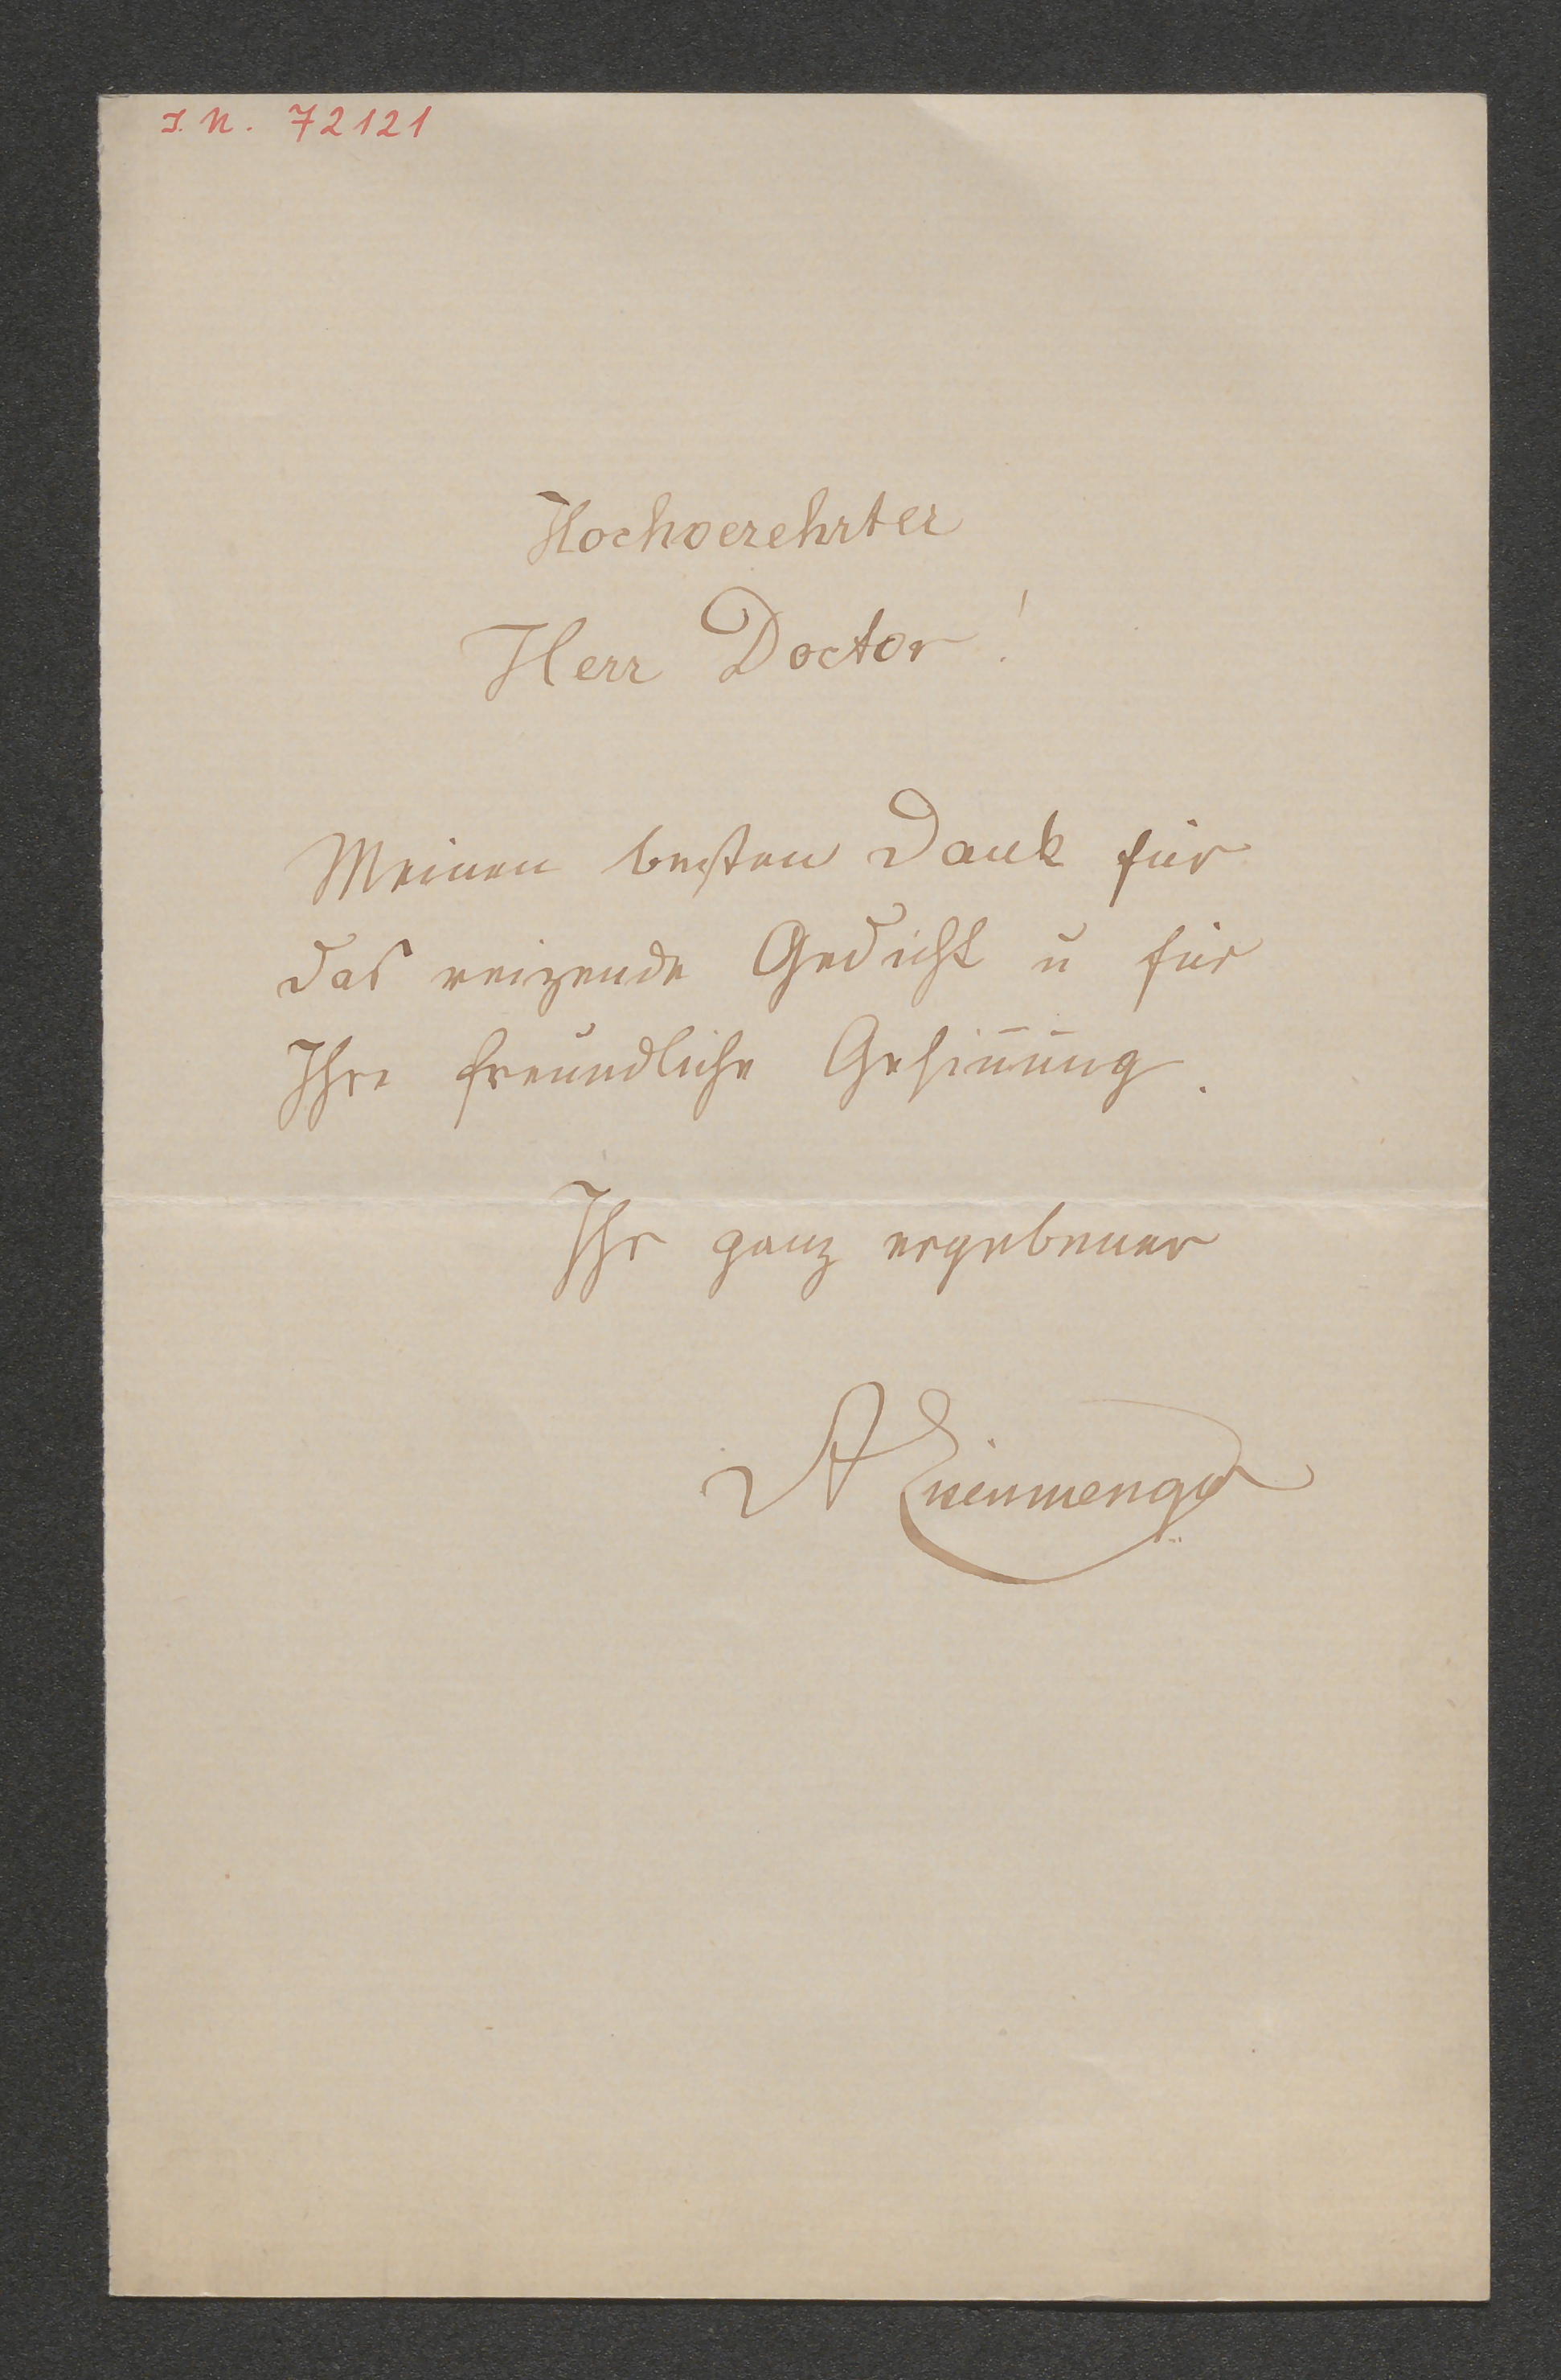 I. N. 72121
Hochverehrter
Herr Doctor!
Meinen besten Dank für
das reizende Gedicht u für
Ihre freundliche Gesin̄ung.
Ihr ganz ergebener
A Eisenmenger